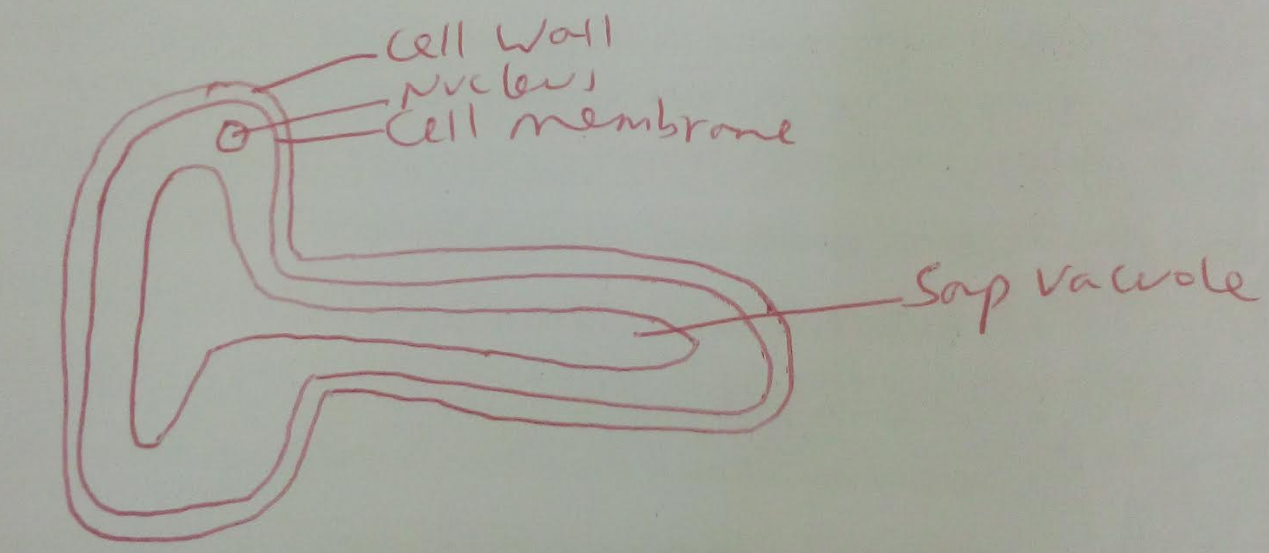 Cell Wall
Nucleus
Cell membrane
Sap vacuole